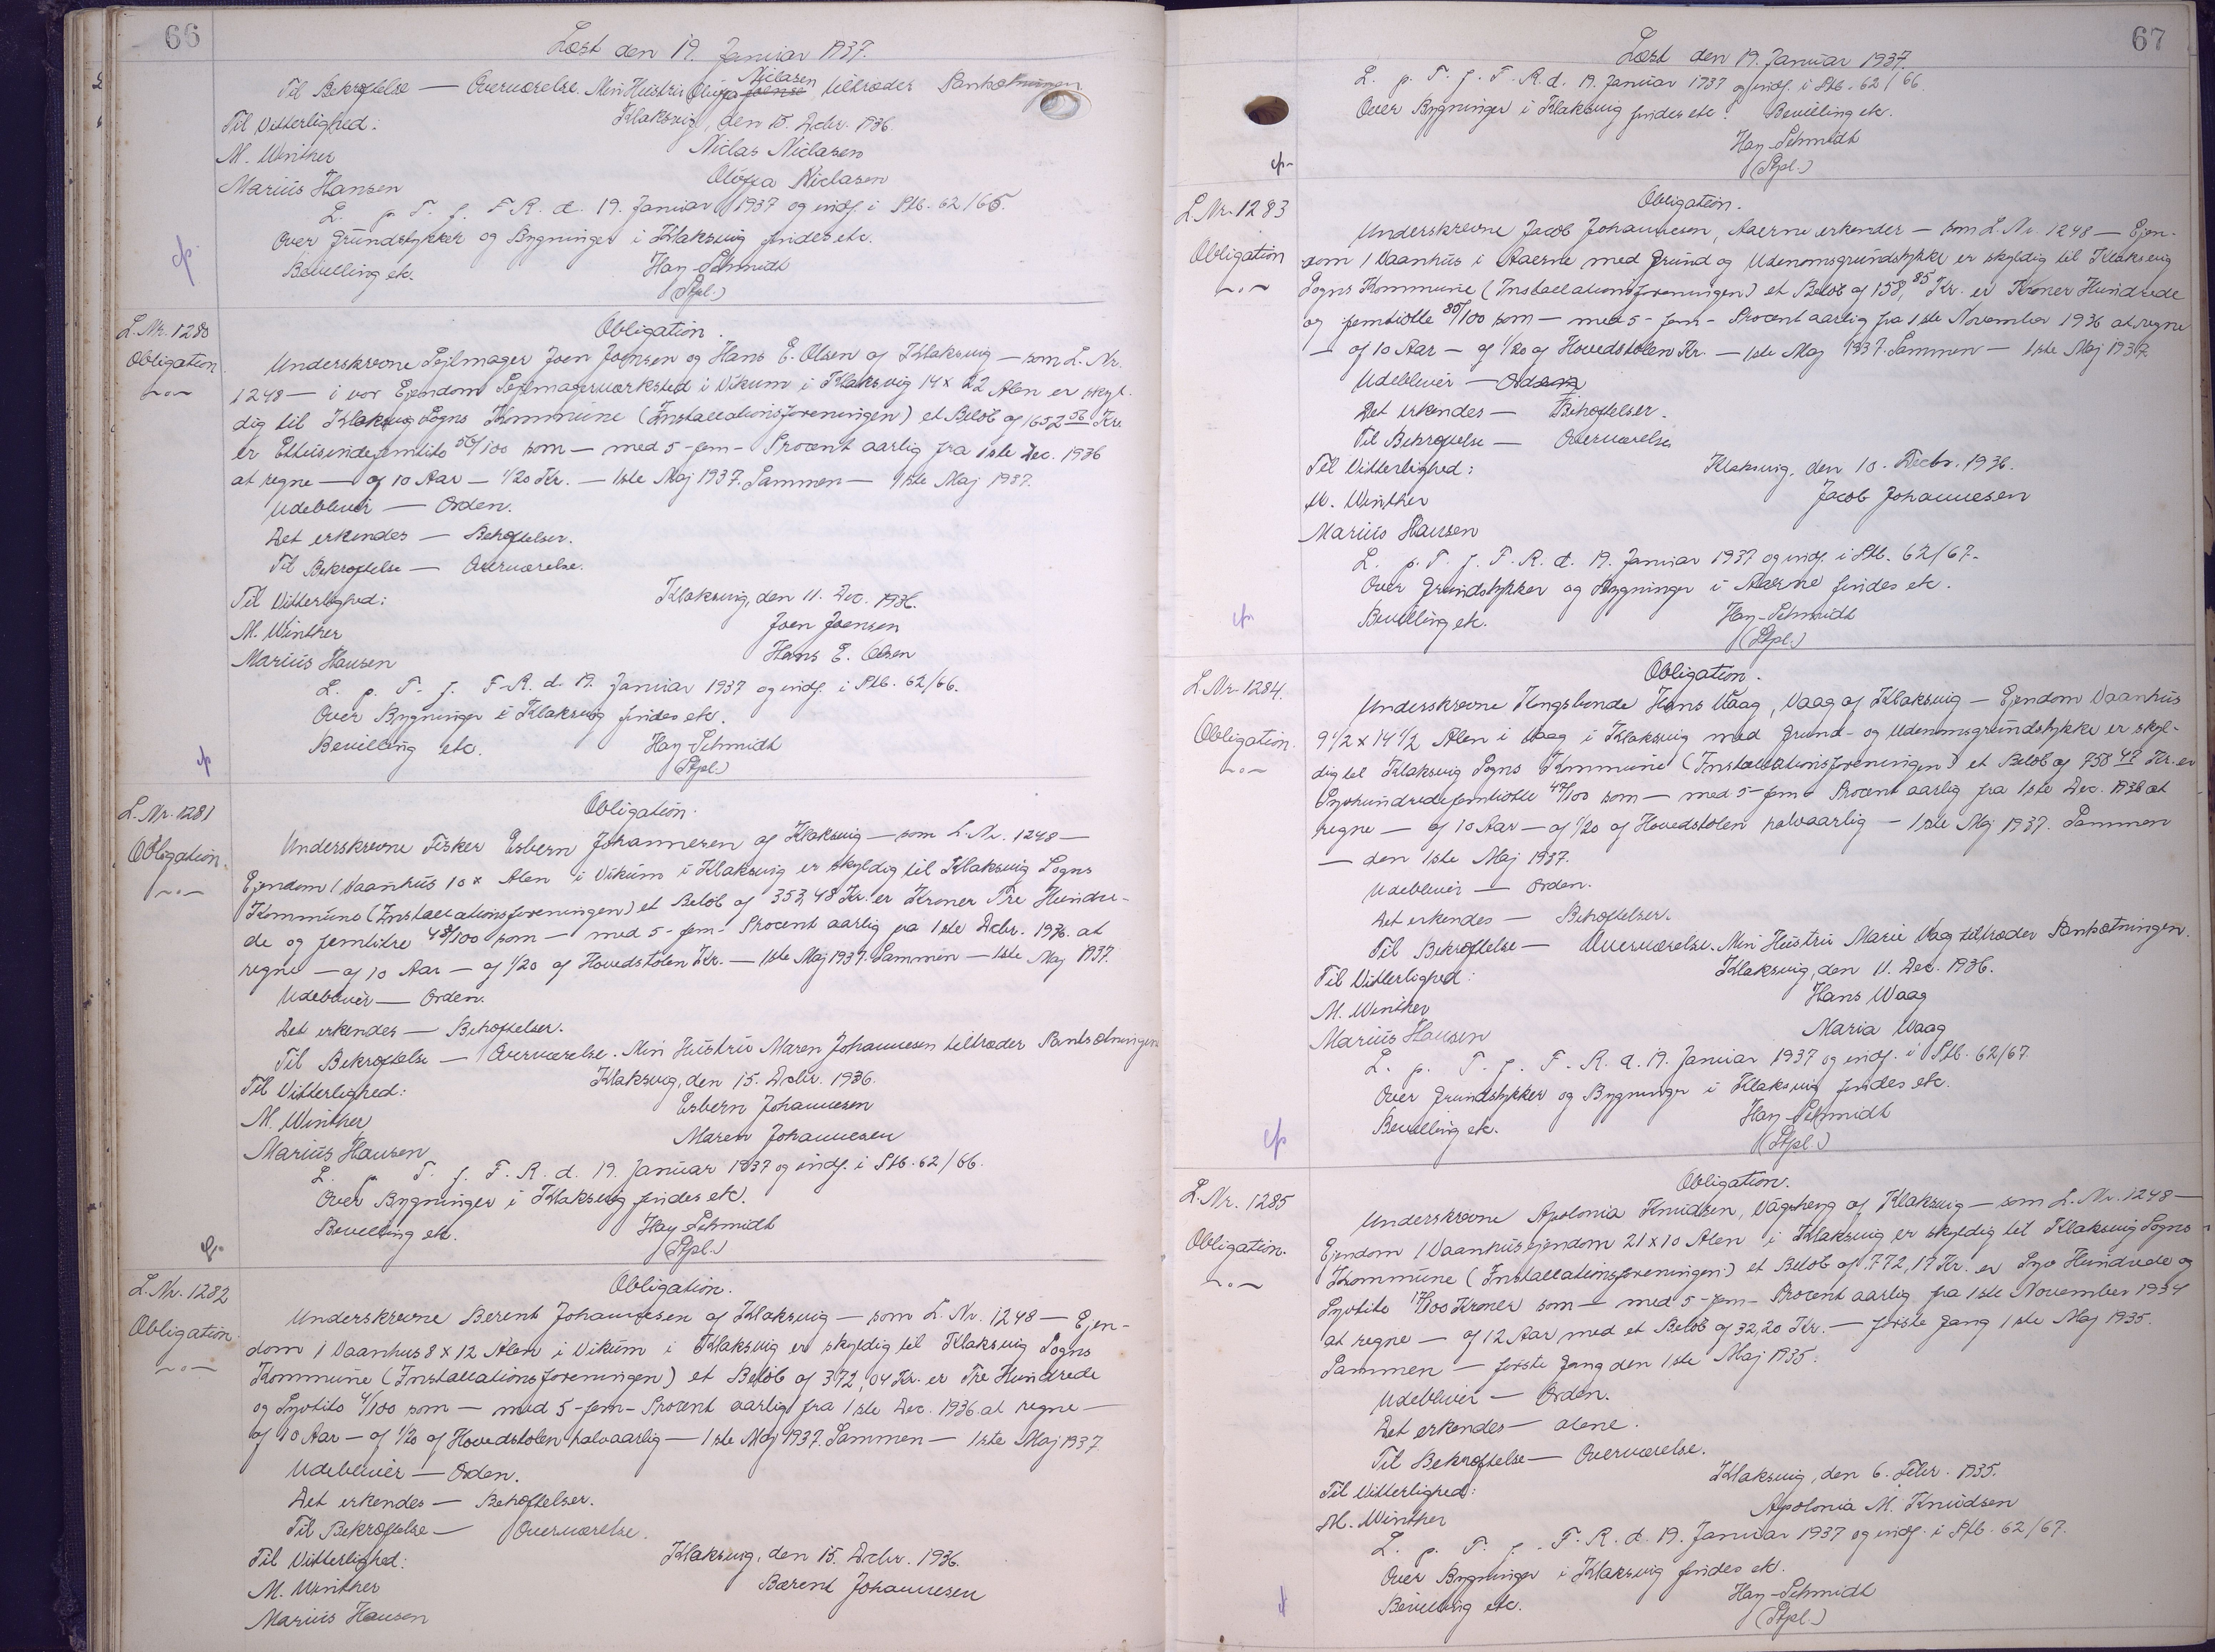 66
Læst den 19. Januar 1937.
Til Bekræftelse — Overværelse. Min Hustru Olufa Niclasen tiltræder Pantsætningen
Til Vitterlighed: Klaksvig, den 15. Decbr. 1936.
M. Winther Niclas Niclasen
Marius Hansen Olufa Niclasen
L. p. T. f. F. R. d. 19. Januar 1937 og indf. i Ptb. 62/65.
Over Grundstykker og Bygninger i Klaksvig findes etc.
Bevilling etc. Hay-Schmidt
(Stpl.)
L. Nr. 1280
Obligation
Obligation.
Underskrevne Sejlmager Joen Joensen og Hans E. Olsen af Klaksvig — som L. Nr.
1248 — i vor Ejendom Sejlmagerværksted i Vikum i Klaksvig 14 x 22 Alen er skyl-
dig til Klaksvig Sogns Kommune (Installationsforeningen) et Beløb af 1652 56 Kr
er Ettusinde 56/100 som — med 5 - fem - Procent aarlig fra 1ste Dec. 1936
at regne — af 10 Aar — 1/20 Kr. — 1ste Maj 1937. Sammen — 1ste Maj 1937.
Udebliver — Orden.
Det erkendes — Behæftelser.
Til Bekræftelse — Overværelse.
Til Vitterlighed: Klaksvig, den 11. Dec. 1936.
M. Winther Joen Joensen
Marius Hansen Hans E. Olsen
L. p. T. f. F. R. d. 19. Januar 1937 og indf. i Ptb. 62/66.
Over Bygninger i Klaksvig findes etc.
Bevilling etc. Hay-Schmidt
(Stpl.)
L. Nr. 1281
Obligation.
Obligation.
Underskrevne Fisker Esbern Johannesen af Klaksvig — som L. Nr. 1248 —
Ejendom 1 Vaanhus 10 x Alen i Vikum i Klaksvig er skyldig til Klaksvig Sogns
Kommune (Installationsforeningen) et Beløb af 353,48 Kr. er Kroner Tre Hundre-
de og femtitre 48/100 som — med 5 - fem - Procent aarlig fra 1ste Decbr. 1936. at
regne — af 10 Aar — af 1/20 af Hovedstolen Kr. — 1ste Maj 1937. Sammen — 1ste Maj 1937.
Udebliver — Orden.
Det erkendes — Behæftelser.
Til Bekræftelse — Overværelse. Min Hustru Maren Johannesen tiltræder Pantsætningen
Til Vitterlighed: Klaksvig, den 15. Decbr. 1936.
M. Winther Esbern Johannesen
Marius Hansen Maren Johannesen
L. p. T. f. F. R. d. 19. Januar 1937 og indf. i Ptb. 62/66.
Over Bygninger i Klaksvig findes etc.
Bevilling etc. Hay-Schmidt
(Stpl.)
L. Nr. 1282
Obligation.
Obligation.
Underskrevne Berent Johannesen af Klaksvig — som L. Nr. 1248 — Ejen-
dom 1 Vaanhus 8 x 12 Alen i Vikum i Klaksvig er skyldig til Klaksvig Sogns
Kommune (Installationsforeningen) et Beløb af 372,04 Kr. er Tre Hundrede
og Syvtito 4/100 som — med 5 - fem - Procent aarlig fra 1ste Dec. 1936. at regne —
af 10 Aar — af 1/20 af Hovedstolen halvaarlig — 1ste Maj 1937. Sammen — 1ste Maj 1937
Udebliver — Orden.
Det erkendes — Behæftelser.
Til Bekræftelse — Overværelse.
Til Vitterlighed: Klaksvig, den 15. Decbr. 1936.
M. Winther Bærent Johannesen
Marius Hansen
67
Læst den 19. Januar 1937.
L. p. T. f. F. R. d. 19. Januar 1937 og indf. i Ptb. 62/66.
Over Bygninger i Klaksvig findes etc. Bevilling etc.
Hay-Schmidt
(Stpl.)
L. Nr. 1283
Obligation
Obligation.
Underskrevne Jacob Johannesen, Aaerne erkender — som L. Nr. 1248 — Ejen-
dom 1 Vaanhus i Aaerne med Grund og Udenomsgrundstykke er skyldig til Klaksvig
Sogns Kommune (Installationsforeningen) et Beløb af 158,85 Kr. er Kroner Hundrede
og femtiotte 85/100 som — med 5 - fem - Procent aarlig fra 1ste November 1936 at regne
— af 10 Aar — af 1/20 af Hovedstolen Kr. — 1ste Maj 1937. Sammen — 1ste Maj 1937.
Udebliver — Orden
Det erkendes — Behæftelser.
Til Bekræftelse — Overværelse
Til Vitterlighed: Klaksvig, den 10. Decbr. 1936.
M. Winther Jacob Johannesen
Marius Hansen
L. p. T. f. F. R. d. 19. Januar 1937 og indf. i Ptb. 62/67.
Over Grundstykker og Bygninger i Aaerne findes etc.
Bevilling etc. Hay-Schmidt
(Stpl.)
L. Nr. 1284.
Obligation.
Obligation.
Underskrevne Kongsbonde Hans Waag, Vaag af Klaksvig — Ejendom Vaanhus
9 1/2 x 14 1/2 Alen i Vaag i Klaksvig med Grund- og Udenomsgrundstykke er skyl-
dig til Klaksvig Sogns Kommune (Installationsforeningen) et Beløb af 758 47 Kr. er
Syvhundredefemtiotte 47/100 som — med 5 - fem - Procent aarlig fra 1ste Dec. 1936 at
regne — af 10 Aar — af 1/20 af Hovedstolen halvaarlig — 1ste Maj 1937. Sammen
— den 1ste Maj 1937.
Udebliver — Orden.
Det erkendes — Behæftelser.
Til Bekræftelse — Overværelse. Min Hustru Marie Vaag tiltræder Pantsætningen.
Til Vitterlighed: Klaksvig, den 11. Dec. 1936.
M. Winther Hans Waag
Marius Hansen Maria Waag
L. p. T. f. F. R. d. 19. Januar 1937 og indf. i Ptb. 62/67
Over Grundstykker og Bygninger i Klaksvig findes etc.
Bevilling etc. Hay-Schmidt
(Stpl.)
L. Nr. 1285
Obligation.
Obligation.
Underskrevne Apolonia Knudsen, Vágsheyg af Klaksvig — som L. Nr. 1248 —
Ejendom 1 Vaanhusejendom 21 x 10 Alen i Klaksvig er skyldig til Klaksvig Sogns
Kommune (Installationsforeningen) et Beløb af 772,17 Kr. er Syv Hundrede og
Syvtito 17/100 Kroner som — med 5 - fem - Procent aarlig fra 1ste November 1934
at regne — af 12 Aar med et Beløb af 32,20 Kr. — første Gang 1ste Maj 1935.
Sammen — første Gang den 1ste Maj 1935.
Udebliver — Orden.
Det erkendes — alene.
Til Bekræftelse — Overværelse.
Til Vitterlighed: Klaksvig, den 6. Febr. 1935.
M. Winther Apolonia M. Knudsen
L. p. T. f. F. R. d. 19. Januar 1937 og indf. i Ptb. 62/67.
Over Bygninger i Klaksvig findes etc.
Bevilling etc. Hay-Schmidt
(Stpl.)